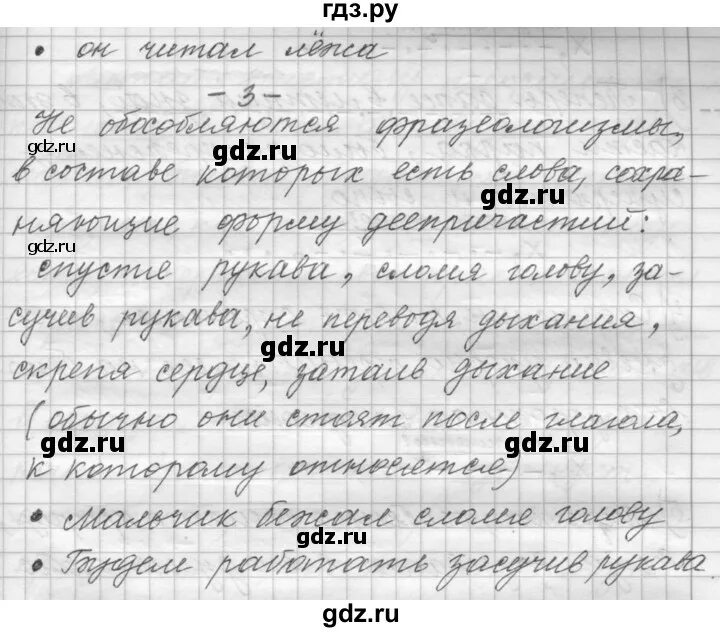 гдз.ру
• он читал лёжа
– 3 –
Не обособляются фразеологизмы,
gdz.ru
gdz.ru
в составе которых есть слова, сохра-
gdz.ru
няющие форму деепричастий:
gdz.ru
спустя рукава, сломя голову, за-
сучив рукава, не переводя дыхания,
gdz.ru
скрепя сердце, затаив дыхание
(обычно они стоят после глагола,
gdz.ru
gdz.ru
к которому относятся)
• Мальчик бежал сломя голову
• Будем работать засучив рукава
gdz.ru